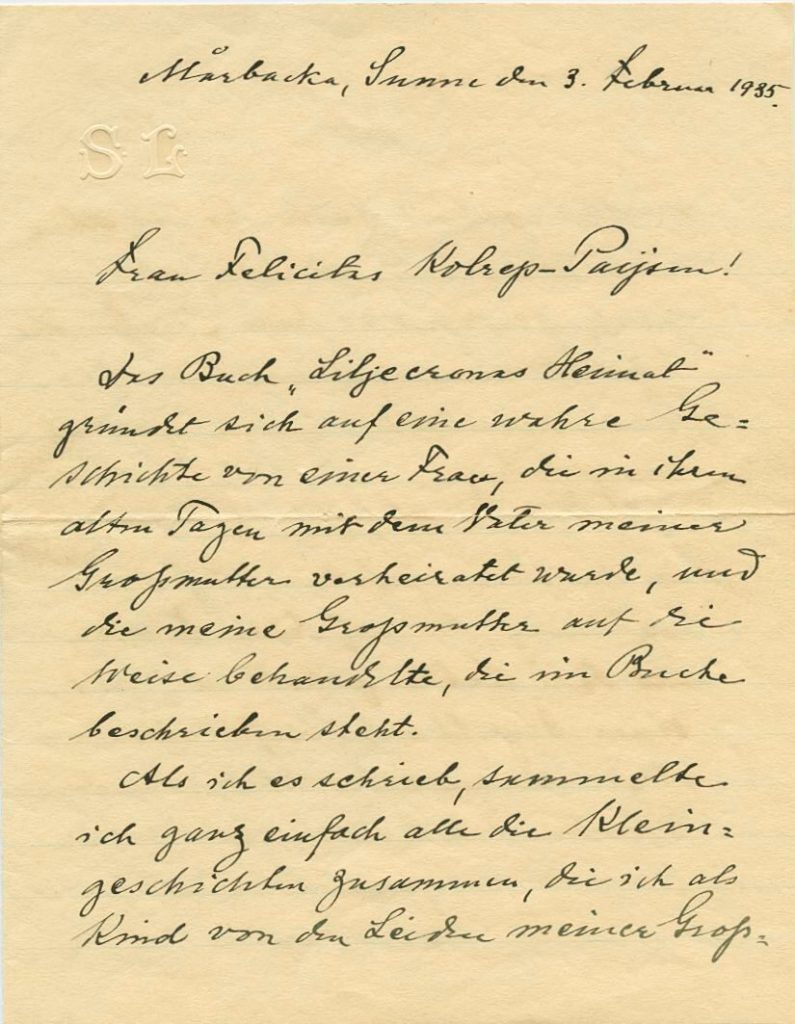 Mårbacka, Sunne den 3. Februar 1935.
SL
Frau Felicitas Kolrep-Paijsen!
Das Buch „Liljecronas Heimat"
gründet sich auf eine wahre Ge=
schichte von einer Frau, die in ihren
alten Tagen mit dem Vater meiner
Großmutter verheiratet wurde, und
die meine Großmutter auf die
Weise behandelte, die im Buche
beschrieben steht.
Als ich es schrieb, sammelte
ich ganz einfach alle die Klein=
geschichten zusammen, die ich als
Kind von den Leiden meiner Groß=